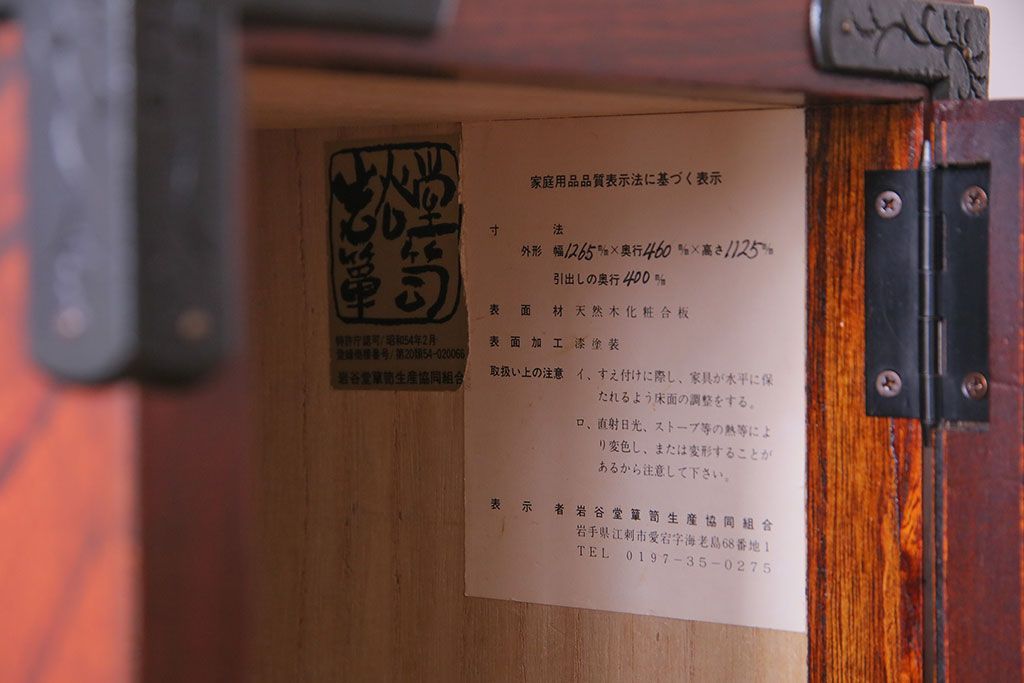 岩谷堂
簞笥
特許庁認可/昭和54年2月
登録商標番号/第20類54-020066
岩谷堂簞笥生産協同組合
家庭用品品質表示法に基づく表示
寸法
外形 幅1265m/m×奥行460m/m×高さ1125m/m
引出しの奥行400m/m
表面材 天然木化粧合板
表面加工 漆塗装
取扱い上の注意 イ、すえ付けに際し、家具が水平に保
たれるよう床面の調整をする。
ロ、直射日光、ストーブ等の熱等によ
り変色し、または変形することが
あるから注意して下さい。
表示者 岩谷堂簞笥生産協同組合
岩手県江刺市愛宕字海老島68番地1
TEL 0197-35-0275